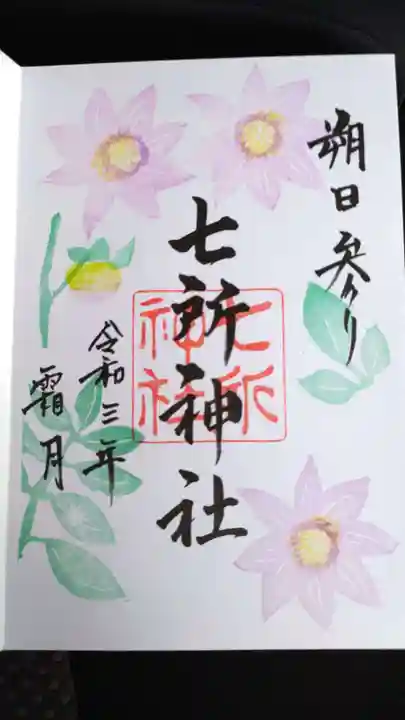 朔日参り
七所神社
七所
神社
令和三年
霜月